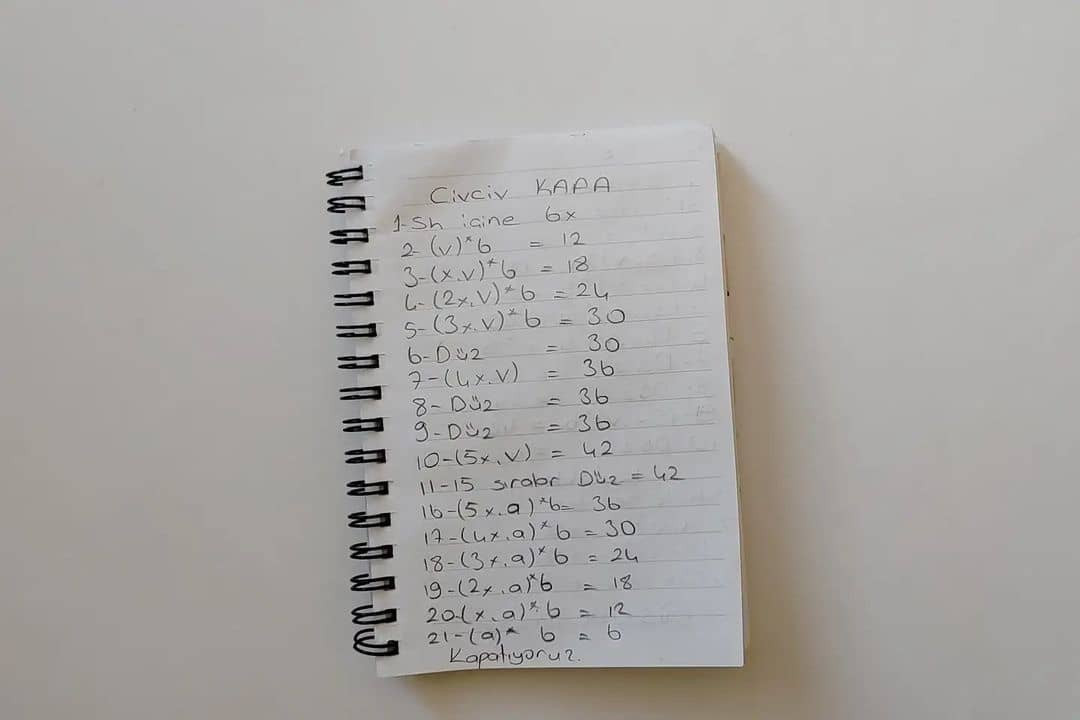 Civciv KAFA
1-Sh içine 6x
2-(v)*6 = 12
3-(x.v)*6 = 18
4-(2x.V)*6 = 24
5-(3x.V)*6 = 30
6-Düz = 30
7-(4x.V) = 36
8-Düz = 36
9-Düz = 36
10-(5x.V) = 42
11-15 sıralar Düz = 42
16-(5x.a)*6= 36
17-(4x.a)*6 = 30
18-(3x.a)*6 = 24
19-(2x.a)*6 = 18
20-(x.a)*6 = 12
21-(a)* 6 = 6
Kapatıyoruz.